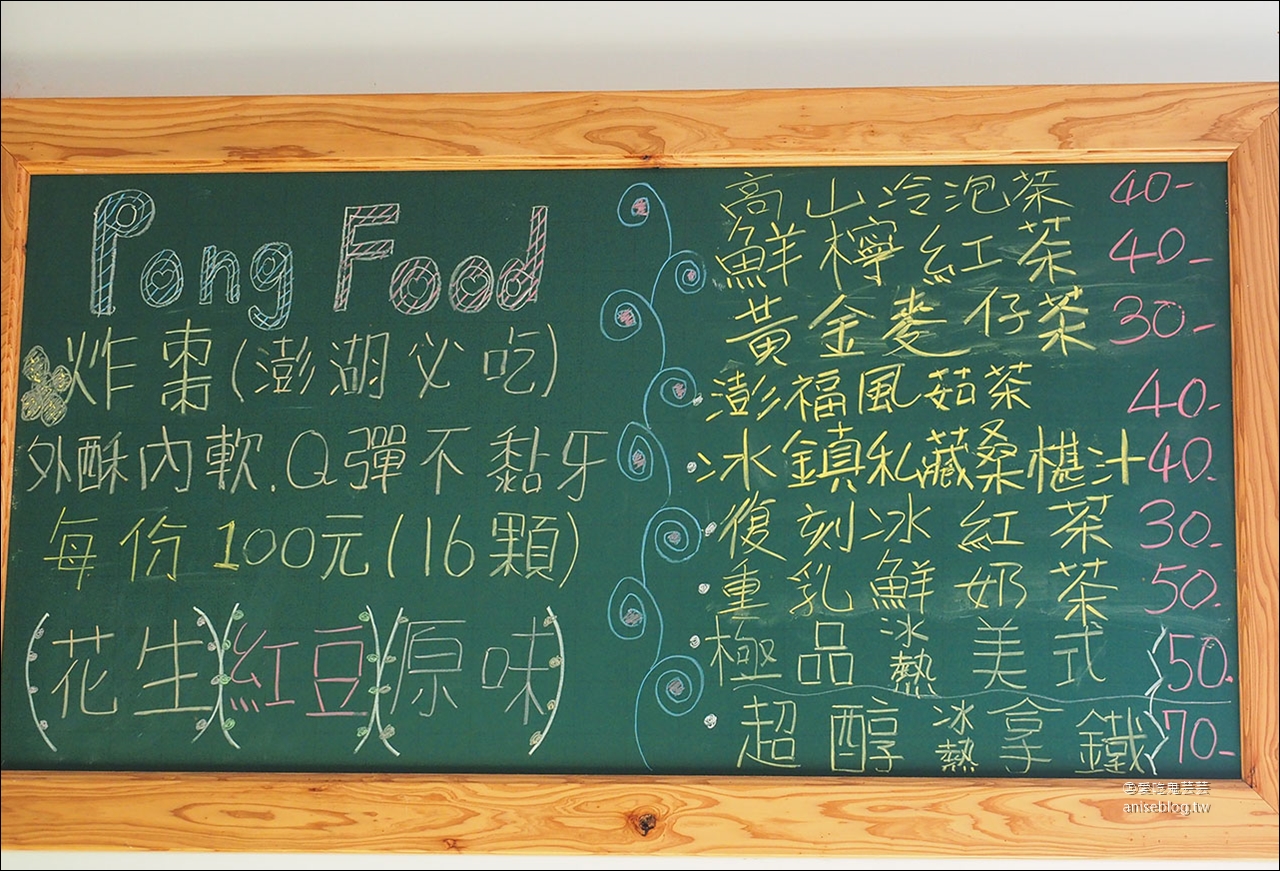 Pong Food
炸棗(澎湖必吃)
外酥內軟.Q彈不黏牙
每份100元(16顆)
(花生)(紅豆)(原味)
高山冷泡茶 40-
鮮檸紅茶 40-
黃金麥仔茶 30-
澎福風茹茶 40-
冰鎮私藏桑椹汁 40.
復刻冰紅茶 30-
重乳鮮奶茶 50.
極品冰熱美式 50.
超醇冰熱拿鐵 70-
愛吃鬼芸芸
aniseblog.tw